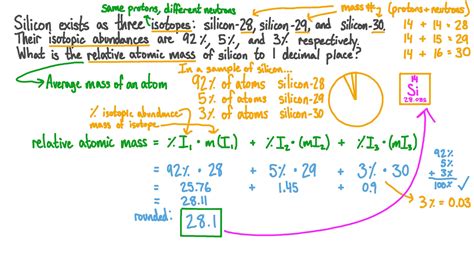 same protons, different neutrons
mass # (protons + neutrons)
Silicon exists as three isotopes: silicon-28, silicon-29, and silicon-30.
Their isotopic abundances are 92%, 5%, and 3% respectively.
What is the relative atomic mass of silicon to 1 decimal place?
14 + 14 = 28
14 + 15 = 29
14 + 16 = 30
Average mass of an atom
In a sample of silicon...
92% of atoms silicon-28
5% of atoms silicon-29
3% of atoms silicon-30
14
Si
28.085
% isotopic abundance
mass of isotope
relative atomic mass = %I₁ · m(I₁) + %I₂ · (mI₂) + %I₃ · (mI₃)
= 92% · 28 + 5% · 29 + 3% · 30
= 25.76 + 1.45 + 0.9
= 28.11
rounded: 28.1
92%
5%
+ 3%
100% ✓
3% = 0.03